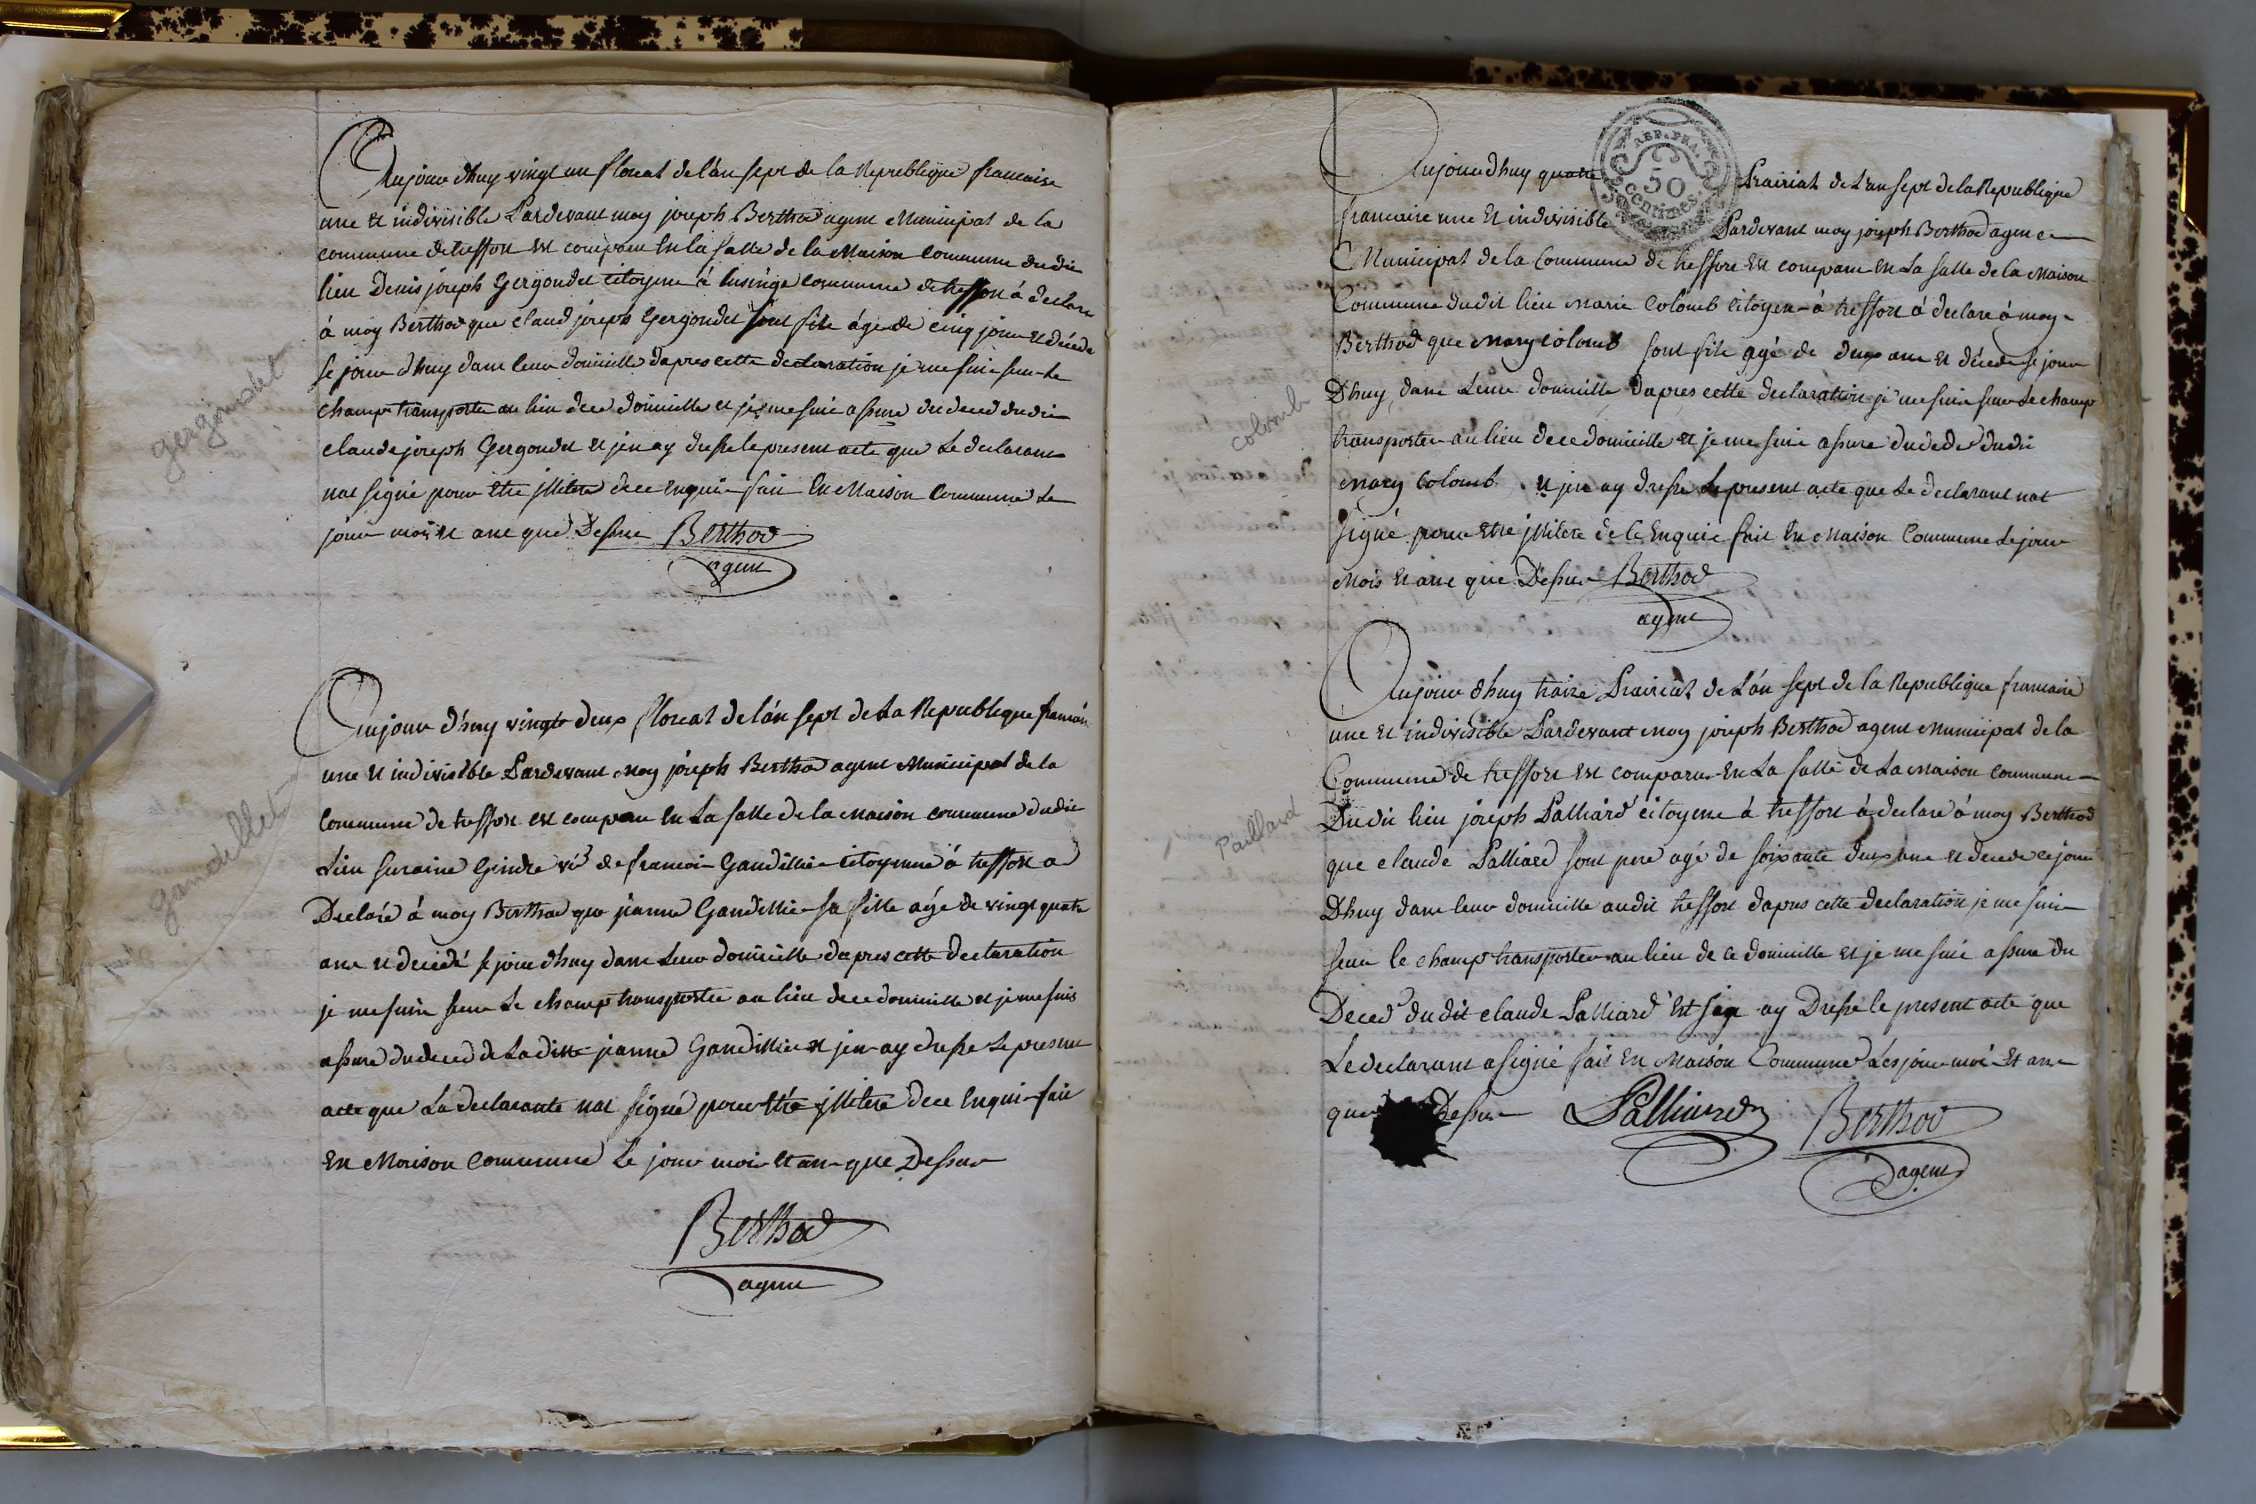 Aujour dhuy vingt un floreal de lán sept de la Republique francaise
une et indivisible Pardevant moy joseph Berthod agent Municipal de la
commune de tressort est comparu En la salle de la Maison Commune dudit
lieu Denis joseph Gergondet citoyene à commune de tressort à declare
à moy Berthod que claud joseph Gergondet sont fils áge de cinq jour et décéde
se jour dhuy dans leur domicille dapres cette declaration je me suis sur le
champ transporte au lieu dece domicille et je me suis assure du deced dudit
claude joseph Gergondet et jen ay dresse le present acte que Le declarant
nat signé pour Etre jllitere dece Enquis fait En Maison Commune Le
jour moi et ans que Dessus Berthod
agent
gergondet
Aujour d'huy vingte deux floreal de lán sept de La Republique francai
une et indivisible Pardevant moy joseph Berthod agent Municipal de la
Commune de tressort est comparu En La salle de la maison commune dudit
Lieu Suraine Gindre vé de francois Gaudillier citoyenne à tressort a
Declaré à moy Berthod que jeanne Gaudillier sa fille agé de vingt quatre
ans et decedé se jour dhuy dans Leur domicille dapres cette declaration
je me suis sur Le champ transporter au lieu dece domicille et je me suis
assure du deced de Laditte jeanne Gaudillier et jen ay dresse Le present
acte que La declarante nat signé pour être jllitere dece Enquis fait
En Maison Commune Le jour moi et an que Dessus
Berthod
agent
gaudillet
REP. FRA.
50
centimes
Aujour dhuy quatre Prairial de Lan sept de la Republique
francaise une Et indivisible Pardevant moy joseph Berthod agent
Municipal de la Commune de tressort Est comparu En La salle de la Maison
Commune dudit lieu Marie Colomb citoyen à tressort à declare à moy
Berthod que Mary Colomb sont fils agé de deux ans et décede se jour
Dhuy dans Leur domicille Dapres cette declaration je me suis sur Le champ
transporter au lieu dece domicille et je me suis assure du deced dudit
Mary Colomb et jen ay dresse Le present acte que Le declarant nat
signé pour Etre jllitere de ce Enquis fait En Maison Commune Le jour
Mois Et ans que Dessus Berthod
agent
colomb
Aujour dhuy traize Prairial de Lán sept de la Republique francaise
une et indivisible Pardevant moy joseph Berthod agent Municipal de la
Commune de tressort est comparu En La salle de La Maison commune
Dudit lieu joseph Palliard citoyene à tressort à declare à moy Berthod
que claude Palliard sont pere agé de soixante deux ans et decede ce jour
Dhuy dans leur domicille audit tressort dapres cette declaration je me suis
sur le champ transporter au lieu de ce domicille et je me suis assure du
Deced dudit claude Palliard Et jen ay Dresse le present acte que
Le declarant a signé fait En Maison Commune Les jour moi Et ans
que Dessus Palliard Berthod
agent
Paillard